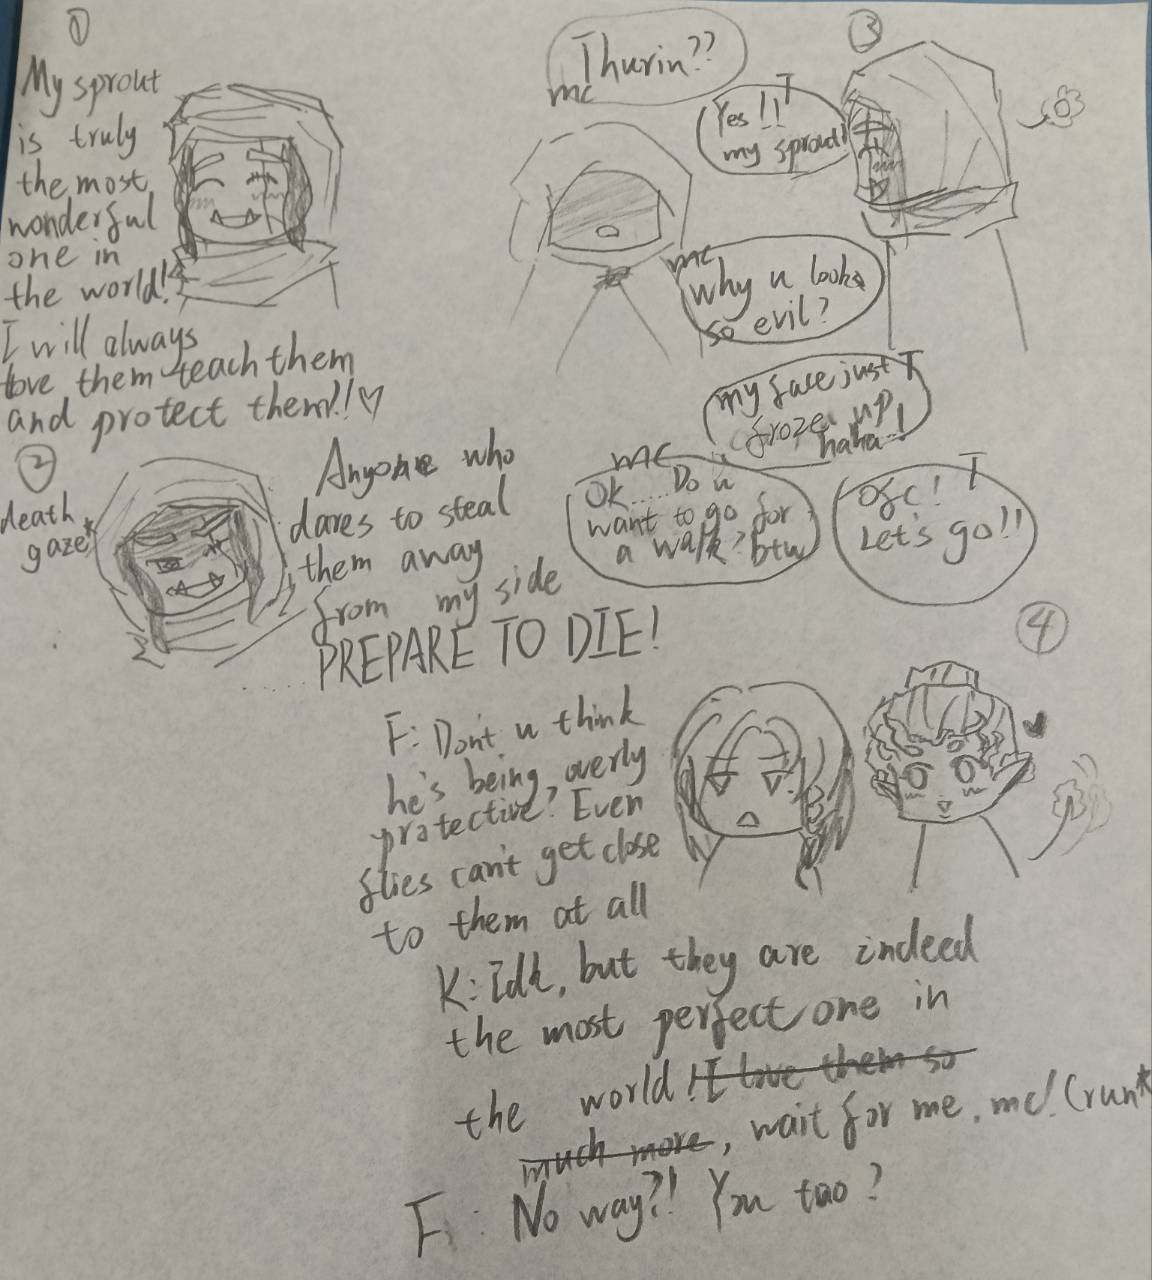 ①
My sprout
is truly
the most
wonderful
one in
the world!
I will always
love them teach them
and protect them!!♡
②
death
gaze*
Anyone who
dares to steal
them away
from my side
......PREPARE TO DIE!
③
Thurin??
mc
T
Yes!!
my sprout!
mc
Why u looks
so evil?
T
my face just
froze up
haha..!
mc
Ok..... Do u
want to go for
a walk? btw
T
Ofc!
Let's go!!
④
F: Don't u think
he's being overly
protective? Even
flies can't get close
to them at all
K: Idk, but they are indeed
the most perfect one in
the world! I love them so
much more, wait for me, mc! (run*
F: No way?! You too?